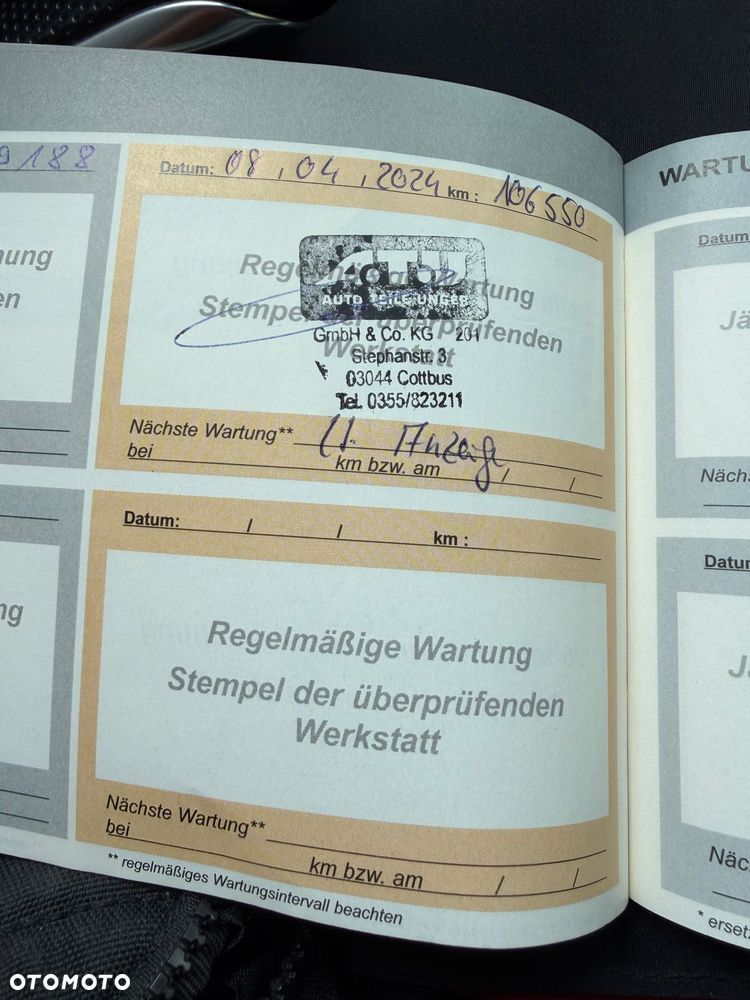 9188
nung
en
ng
Datum: 08 , 04 , 2024 km : 106550
Regelmäßige Wartung
Stempel der überprüfenden
Werkstatt
ATU
AUTO TEILE UNGER
GmbH & Co. KG 201
Stephanstr. 3
03044 Cottbus
Tel. 0355/823211
Nächste Wartung** lt. Anzeige
bei km bzw. am / /
Datum: / / km :
Regelmäßige Wartung
Stempel der überprüfenden
Werkstatt
Nächste Wartung**
bei km bzw. am / /
** regelmäßiges Wartungsintervall beachten
WARTU
Datum
Jä
Nächs
Datum
Jä
Näc
* ersetz
OTOMOTO